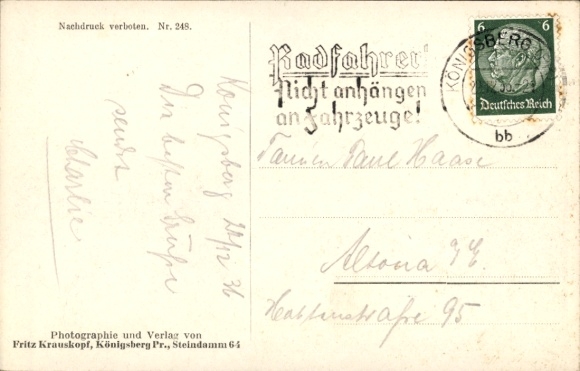 Nachdruck verboten. Nr. 248.
Königsberg 22/12 36
Die besten Grüße
sendet
Charlie
Photographie und Verlag von
Fritz Krauskopf, Königsberg Pr., Steindamm 64
Radfahrer!
Nicht anhängen
an Fahrzeuge!
KÖNIGSBERG
bb
6 6
Deutsches Reich
Paul Haase
Altona
95